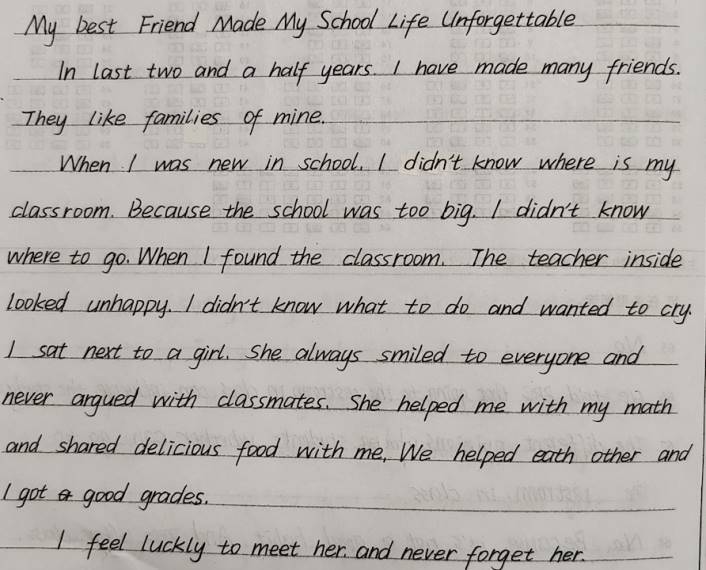 My best Friend Made My School Life Unforgettable
In last two and a half years. I have made many friends.
They like families of mine.
When I was new in school. I didn't know where is my
classroom. Because the school was too big. I didn't know
where to go. When I found the classroom. The teacher inside
looked unhappy. I didn't know what to do and wanted to cry.
I sat next to a girl. She always smiled to everyone and
never argued with classmates. She helped me with my math
and shared delicious food with me. We helped eath other and
I got good grades.
I feel luckly to meet her. and never forget her.